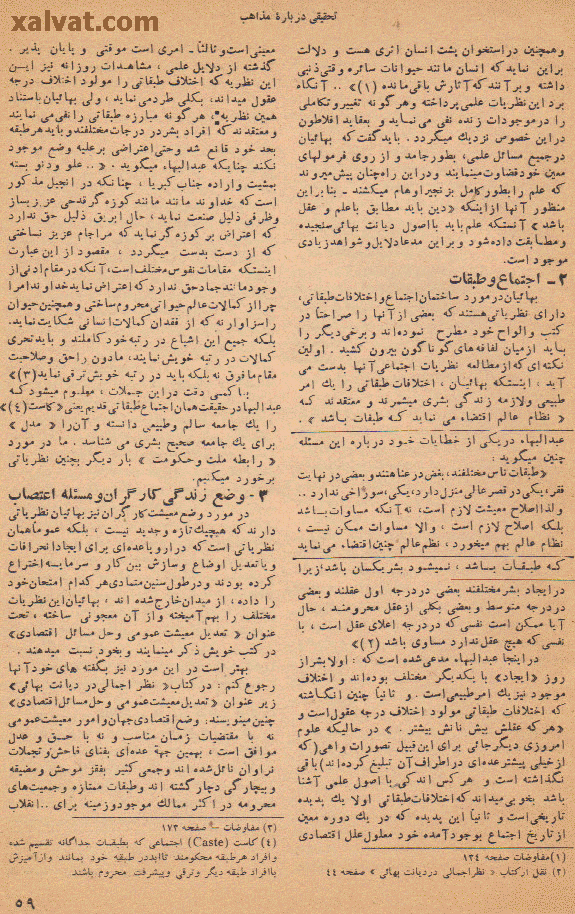 xalvat.com
تحقیقی دربارهٔ مذاهب
وهمچنین در استخوان پشت انسان اثری هست و دلالت
براین نماید که انسان مانند حیوانات سائره وقتی ذنبی
داشته وبرآنند که آثارش باقی‌مانده (۱)» .. آنگاه
برد این نظریات علمی پرداخته وهرگونه تغییر وتکاملی
را در موجودات زنده نفی می‌نماید و بعقاید افلاطون
دراین خصوص نزدیك میگردد . باید گفت که بهائیان
در جمیع مسائل علمی، بطور جامد و از روی فرمولهای
معین خود قضاوت مینمایند و دراین راه چنان پیش میروند
که علم را بطور کامل بزنجیر اوهام میکشند . بنابراین
منظور آنها ازاینکه «دین باید مطابق باعلم و عقل
باشد» آنستکه علم باید بااصول دیانت بهائی سنجیده
ومطابقت داده شود و براین مدعا دلایل و شواهد زیادی
موجود است.
۲ـ اجتماع و طبقات
بهائیان درمورد ساختمان اجتماع و اختلافات طبقاتی،
دارای نظریاتی هستند که بعضی از آنها را صراحتاً در
کتب والواح خود مطرح نموده‌اند و برخی دیگر را
باید از میان لفافه‌های گوناگون بیرون کشید . اولین
نکته‌ای که از مطالعه نظریات اجتماعی آنها بدست می
آید ، اینستکه بهائیان ، اختلافات طبقاتی را یك امر
طبیعی ولازمه زندگی بشری میشمرند و معتقدند که
« نظام عالم اقتضاء می نماید که طبقات باشد » .
عبدالبهاء دریکی از خطابات خود درباره این مسئله
چنین میگوید :
«طبقات ناس مختلفند، بعض در غنا هستند و بعضی درنهایت
فقر، یکی در قصر عالی منزل دارد، یکی، سوراخی ندارد ..
ولذا اصلاح معیشت لازم است، نه آنکه مساوات باشد
بلکه اصلاح لازم است ، والا مساوات ممکن نیست ،
نظام عالم بهم میخورد ، نظم عالم چنین اقتضاء می نماید
که طبقات باشد ، نمیشود بشر یکسان باشد زیرا
در ایجاد بشر مختلفند بعضی در درجه اول عقلند و بعضی
در درجه متوسط و بعضی بکلی از عقل محرومند ، حال
آیا ممکن است نفسی که در درجه اعلای عقل است ، با
نفسی که هیچ عقل ندارد مساوی باشد (۲)»
در اینجا عبدالبهاء مدعی شده است که : اولا بشر از
روز «ایجاد» با یکدیگر مختلف بوده‌اند و اختلاف
موجود نیز یك امر طبیعی است . و ثانیاً چنین انگاشته
که اختلافات طبقاتی مولود اختلاف درجه عقول است و
«هر که عقلش بیش نانش بیشتر . » در حالیکه علوم
امروزی دیگر جائی برای این قبیل تصورات واهی (که
از خیلی پیشتر عده‌ای در اطراف آن تبلیغ کرده‌اند) باقی
نگذاشته است و هر کس اندکی با اصول علمی آشنا
باشد بخوبی میداند که اختلافات طبقاتی اولا یك پدیده
تاریخی است و ثانیاً این پدیده که در یك دوره معین
از تاریخ اجتماع بوجود آمده خود معلول علل اقتصادی
(۱)مفاوضات صفحه ۱۳۴
(۲) نقل از کتاب « نظراجمالی دردیانت بهائی » صفحه ۴۴
معینی است و ثالثاً ـ امری است موقتی و پایان پذیر .
گذشته از دلایل علمی ، مشاهدات روزانه نیز این
این نظریه که اختلاف طبقاتی را مولود اختلاف درجه
عقول میداند، بکلی طرد می نماید ، ولی بهائیان باستناد
همین نظریه، هرگونه مبارزه طبقاتی را نفی می نمایند
ومعتقدند که افراد بشر در درجات مختلفند و باید هر طبقه
بحد خود قانع شد وحتی اعتراضی برعلیه وضع موجود
نکند چنانکه عبدالبهاء میگوید . «.. علو ودنو بسته
بمشیت و اراده جناب کبریا ، چنانکه در انجیل مذکور
است که خداوند مانند مانند کوزه گر قدحی عزیز بساز
وظرفی ذلیل صنعت نماید، حال ابریق ذلیل حق ندارد
که اعتراض بر کوزه گر نماید که مراجام عزیز نساختی
که از دست بدست میگردد ، مقصود از این عبارت
اینستکه مقامات نفوس مختلف است، آنکه در مقام ادنی از
وجود مانند جماد حق ندارد که اعتراض نماید خداوندا مرا
چرا از کمالات عالم حیوانی محروم ساختی و همچنین حیوان
را سزاوار نه که از فقدان کمالات انسانی شکایت نماید.
بلکه جمیع این اشیاء در رتبه خود کاملند و باید تحری
کمالات در رتبه خویش نمایند، مادون راحق وصلاحیت
مقام مافوق نه بلکه باید در رتبه خویش ترقی نماید(۳)»
با کمی دقت دراین جملات ، معلوم میشود که
عبدالبهاء در حقیقت همان اجتماع طبقاتی قدیم یعنی «کاست(۴)»
را یك جامعه سالم وطبیعی دانسته و آن‌را « مدل »
برای یك جامعه صحیح بشری می شناسد . ما در مورد
« رابطه ملت وحکومت » بار دیگر بچنین نظریاتی
برخورد میکنیم.
۳ ـ وضع زندگی کارگران و مسئله اعتصاب
در مورد وضع معیشت کارگران نیز بهائیان نظریاتی
دارند که هیچیك تازه وجدید نیست ، بلکه عموماً همان
نظریاتی است که در اروپا عده‌ای برای ایجاد انحرافات
ویاتعدیل اوضاع وسازش بین کار و سرمایه اختراع
کرده بودند و درطول سنین متمادی هر کدام امتحان خود
را داده ، از میدان خارج شده اند ، بهائیان این نظریات
مختلف را بهم آمیخته واز آن معجونی ساخته ، تحت
عنوان « تعدیل معیشت عمومی و حل مسائل اقتصادی»
در کتب خویش ذکر مینمایند و بخود نسبت میدهند .
بهتر است در این مورد نیز بگفته های خود آنها
رجوع کنم : در کتاب« نظر اجمالی در دیانت بهائی»
زیر عنوان « تعدیل معیشت عمومی و حل مسائل اقتصادی»
چنین مینویسند: وضع اقتصادی جهان و امور معیشت عمومی
نه با مقتضیات زمان مناسب و نه با حق و عدل
موافق است ، بهمین جهة عده‌ای بغنای فاحش و تجملات
فراوان نائل شده اند و جمعی کثیر بفقر موحش و مضیقه
وبیچارگی دچار گشته اند وطبقات ممتازه و جمعیت‌های
محرومه در اکثر ممالك موجود و زمینه برای ..انقلاب
(۳) مفاوضات ـ صفحه ۱۷۳
(۴) کاست (Caste) اجتماعی که بطبقات جداگانه تقسیم شده
وافراد هر طبقه محکومند تاابد در طبقه خود بمانند و از آمیزش
باافراد طبقه دیگر وترقی وپیشرفت محروم باشند
۵۹